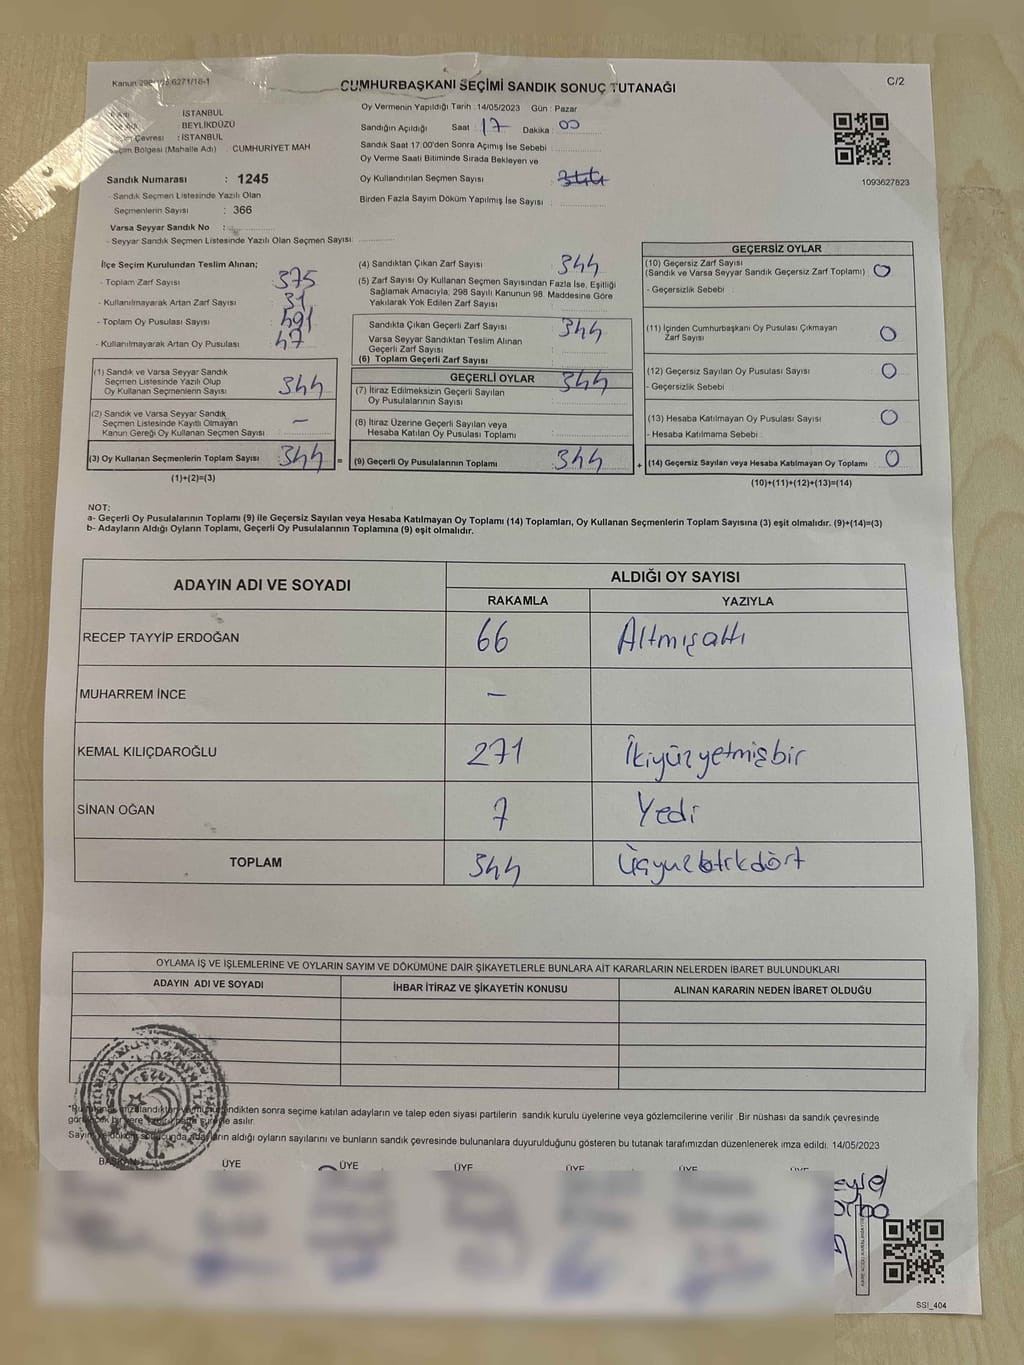 CUMHURBAŞKANI SEÇİMİ SANDIK SONUÇ TUTANAĞI
C/2
: İSTANBUL
: BEYLİKDÜZÜ
Çevresi : İSTANBUL
Bölgesi (Mahalle Adı) : CUMHURİYET MAH
Sandık Numarası : 1245
- Sandık Seçmen Listesinde Yazılı Olan
Seçmenlerin Sayısı : 366
Varsa Seyyar Sandık No :
- Seyyar Sandık Seçmen Listesinde Yazılı Olan Seçmen Sayısı:
Oy Vermenin Yapıldığı Tarih : 14/05/2023 Gün : Pazar
Sandığın Açıldığı Saat : 17 Dakika : 00
Sandık Saat 17.00'den Sonra Açımış İse Sebebi :
Oy Verme Saati Bitiminde Sırada Bekleyen ve
Oy Kullandırılan Seçmen Sayısı :
Birden Fazla Sayım Döküm Yapılmış İse Sayısı :
1093627823
İlçe Seçim Kurulundan Teslim Alınan;
- Toplam Zarf Sayısı : 375
- Kullanılmayarak Artan Zarf Sayısı : 31
- Toplam Oy Pusulası Sayısı : 491
- Kullanılmayarak Artan Oy Pusulası : 47
(1) Sandık ve Varsa Seyyar Sandık
Seçmen Listesinde Yazılı Olup
Oy Kullanan Seçmenlerin Sayısı : 344
(2) Sandık ve Varsa Seyyar Sandık
Seçmen Listesinde Kayıtlı Olmayan
Kanun Gereği Oy Kullanan Seçmen Sayısı : -
(3) Oy Kullanan Seçmenlerin Toplam Sayısı : 344 =
(1)+(2)=(3)
(4) Sandıktan Çıkan Zarf Sayısı : 344
(5) Zarf Sayısı Oy Kullanan Seçmen Sayısından Fazla İse, Eşitliği
Sağlamak Amacıyla; 298 Sayılı Kanunun 98. Maddesine Göre
Yakılarak Yok Edilen Zarf Sayısı :
Sandıkta Çıkan Geçerli Zarf Sayısı : 344
Varsa Seyyar Sandıktan Teslim Alınan
Geçerli Zarf Sayısı :
(6) Toplam Geçerli Zarf Sayısı
GEÇERLİ OYLAR 344
(7) İtiraz Edilmeksizin Geçerli Sayılan
Oy Pusulalarının Sayısı :
(8) İtiraz Üzerine Geçerli Sayılan veya
Hesaba Katılan Oy Pusulası Toplamı :
(9) Geçerli Oy Pusulalarının Toplamı : 344 +
GEÇERSİZ OYLAR
(10) Geçersiz Zarf Sayısı
(Sandık ve Varsa Seyyar Sandık Geçersiz Zarf Toplamı) : 0
- Geçersizlik Sebebi :
(11) İçinden Cumhurbaşkanı Oy Pusulası Çıkmayan
Zarf Sayısı : 0
(12) Geçersiz Sayılan Oy Pusulası Sayısı : 0
- Geçersizlik Sebebi :
(13) Hesaba Katılmayan Oy Pusulası Sayısı : 0
- Hesaba Katılmama Sebebi :
(14) Geçersiz Sayılan veya Hesaba Katılmayan Oy Toplamı : 0
(10)+(11)+(12)+(13)=(14)
NOT:
a- Geçerli Oy Pusulalarının Toplamı (9) ile Geçersiz Sayılan veya Hesaba Katılmayan Oy Toplamı (14) Toplamları, Oy Kullanan Seçmenlerin Toplam Sayısına (3) eşit olmalıdır. (9)+(14)=(3)
b- Adayların Aldığı Oyların Toplamı, Geçerli Oy Pusulalarının Toplamına (9) eşit olmalıdır.
ADAYIN ADI VE SOYADI
ALDIĞI OY SAYISI
RAKAMLA YAZIYLA
RECEP TAYYİP ERDOĞAN 66 Altmışaltı
MUHARREM İNCE -
KEMAL KILIÇDAROĞLU 271 İkiyüzyetmişbir
SİNAN OĞAN 7 Yedi
TOPLAM 344
OYLAMA İŞ VE İŞLEMLERİNE VE OYLARIN SAYIM VE DÖKÜMÜNE DAİR ŞİKAYETLERLE BUNLARA AİT KARARLARIN NELERDEN İBARET BULUNDUKLARI
ADAYIN ADI VE SOYADI İHBAR İTİRAZ VE ŞİKAYETİN KONUSU ALINAN KARARIN NEDEN İBARET OLDUĞU
sonra seçime katılan adayların ve talep eden siyasi partilerin sandık kurulu üyelerine veya gözlemcilerine verilir. Bir nüshası da sandık çevresinde
asılır.
aldığı oyların sayılarını ve bunların sandık çevresinde bulunanlara duyurulduğunu gösteren bu tutanak tarafımızdan düzenlenerek imza edildi. 14/05/2023
ÜYE ÜYE ÜYE ÜYE ÜYE
SSI_404